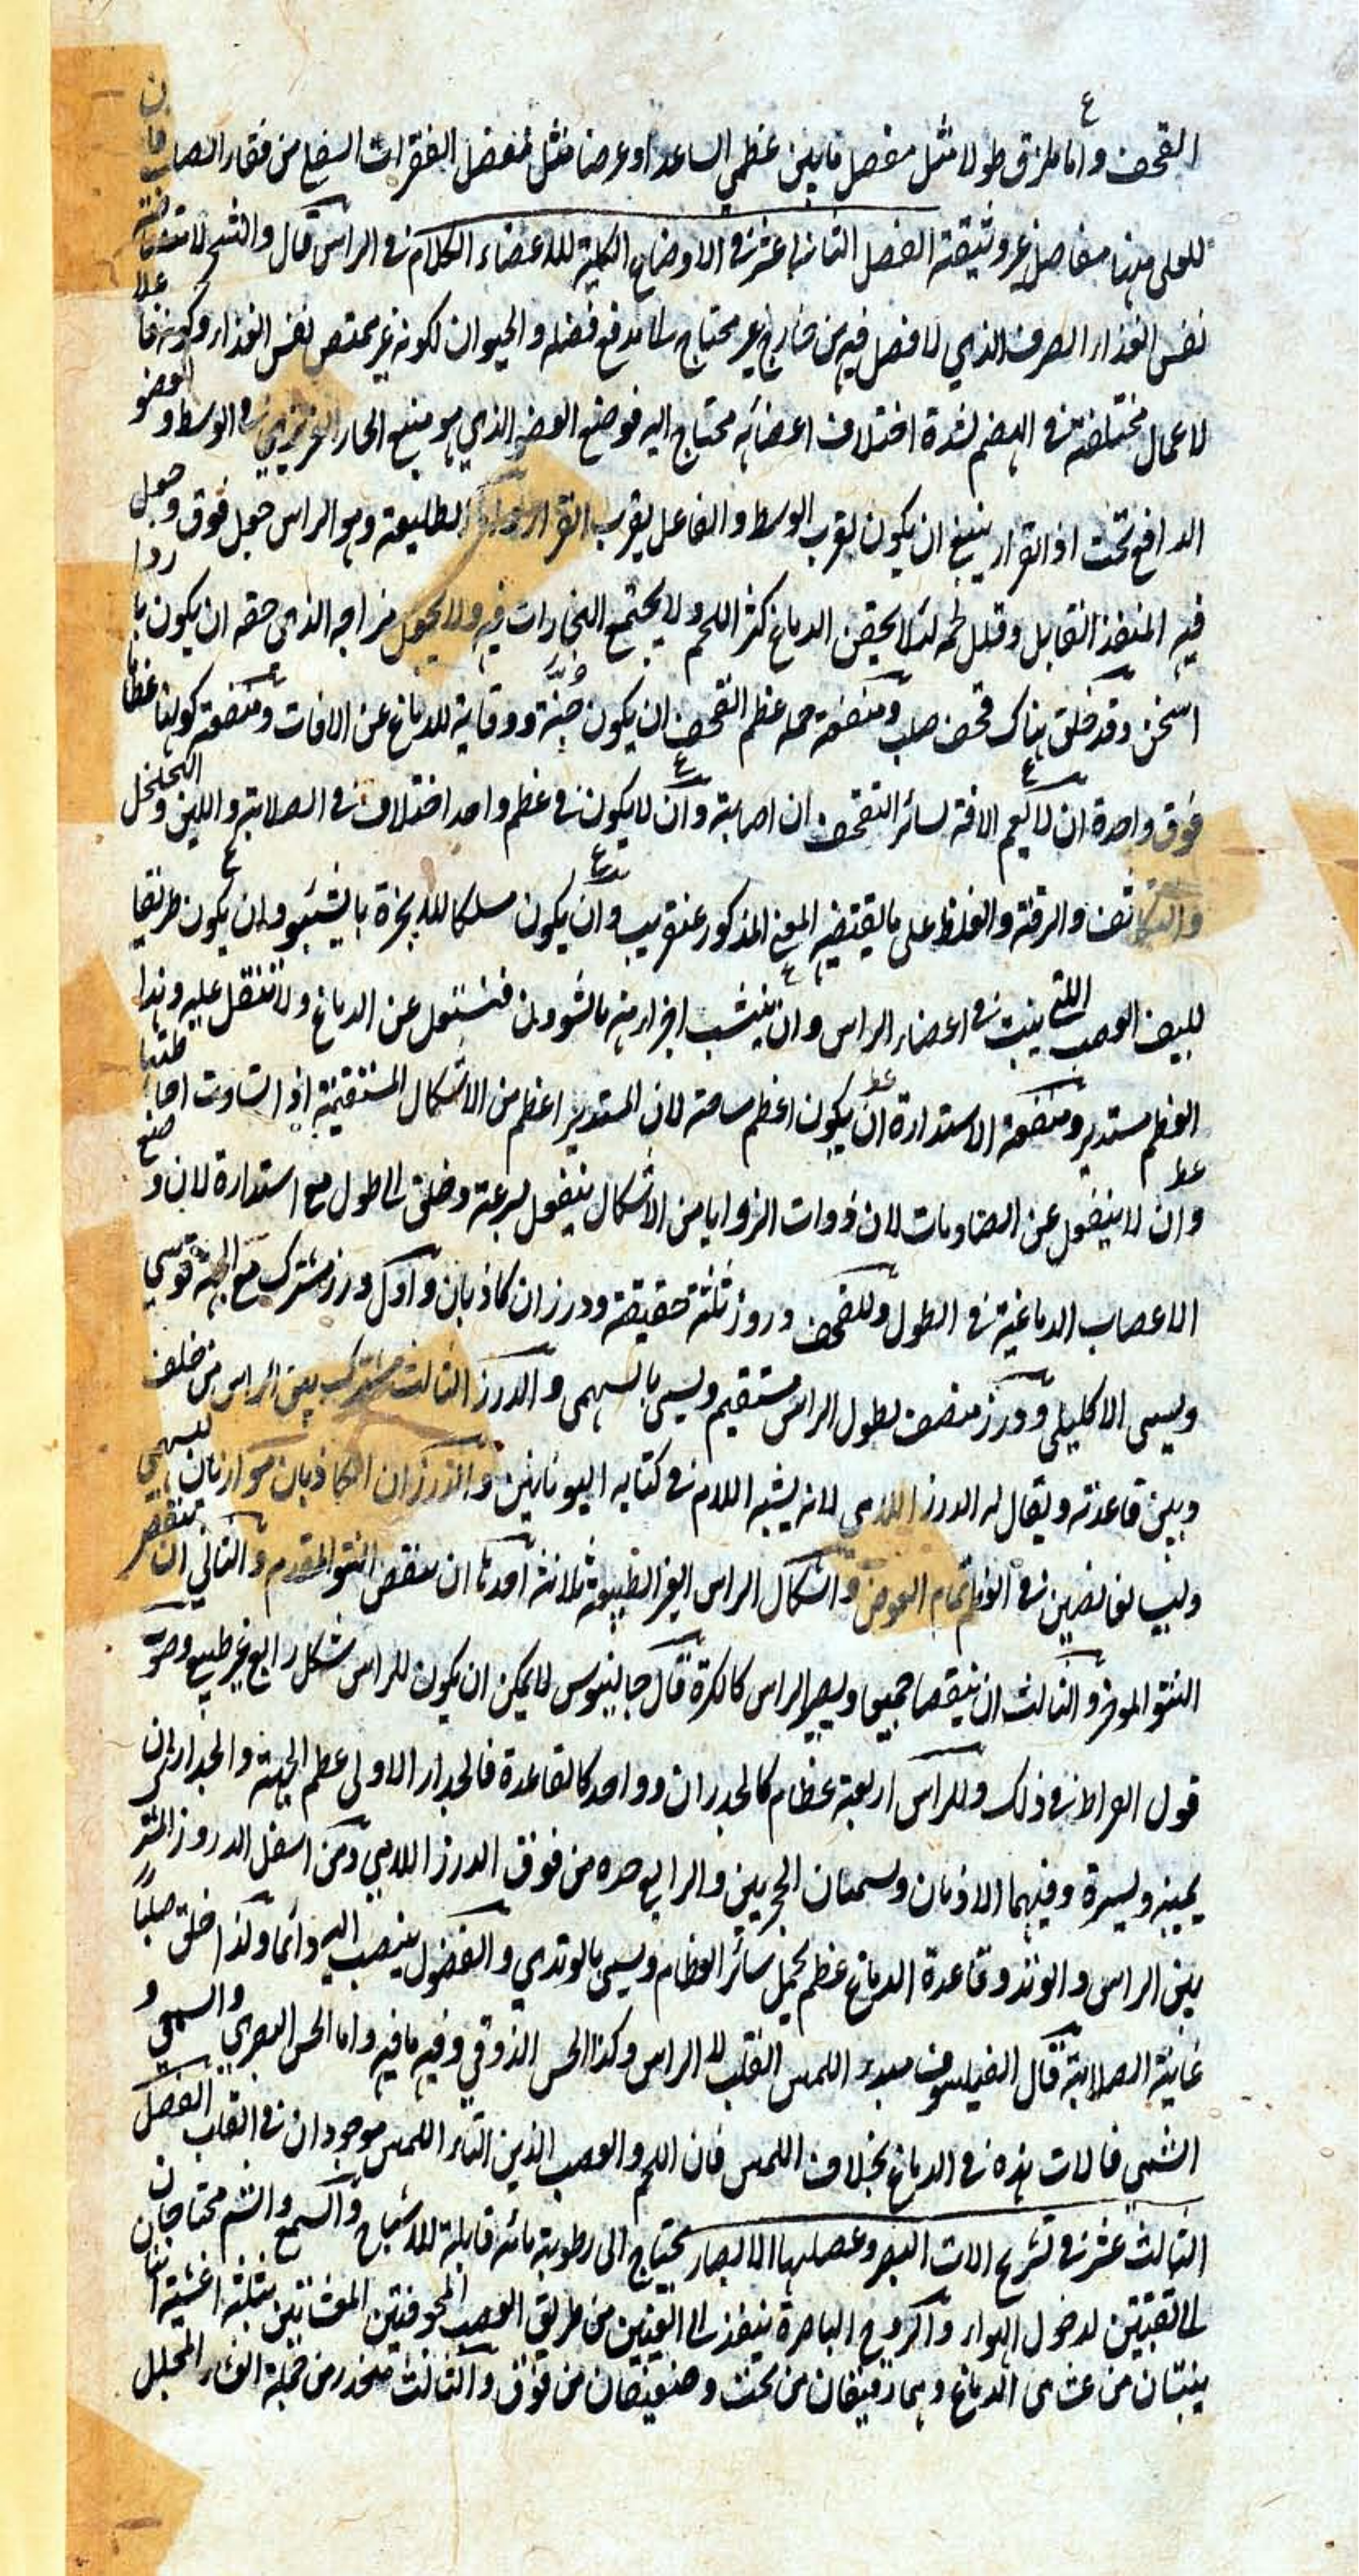 القحف واما ملزق طولا مثل مفصل ما بين عظمي الساعد او عرضا مثل مفصل الفقرات السفلى من فقار الصلب فان
للعلى منها مفاصل غير وثيقة الفصل الثاني عشر في الاوضاع الكلية للاعضاء الكلام في الراس قال والشجر لامتصاصه
نفس الغذاء الصرف الذي لا فضل فيه من خارج غير محتاج الى مدفع فضله والحيوان لكونه غير ممتص نفس الغذاء وكونه فاعلا
لاعمال مختلفة في الهضم لشدة اختلاف اعضائه محتاج اليه فوضع العضو الذي هو منبع الحار الغريزي في الوسط والعضو
الدافع تحت اذ القرار ينبغي ان يكون بقرب الوسط والفاعل بقرب القرار الطليعة وهو الراس جعل فوق وجعل
فيه المنفذ القابل وقلل لحمه لئلا يحقن الدماغ كثر اللحم ولا يجتمع البخارات فيه ولا يحول مزاجه الذي حقه ان يكون باردا
اسخن وقد خلق هناك قحف صلب ومنفعة جملة عظم القحف ان يكون جنة ووقاية للدماغ عن الافات ومنفعة كونها عظاما
فوق واحدة ان لا يعم الافة لسائر القحف ان اصابته وان لا يكون في عظم واحد اختلاف في الصلابة واللين والتخلخل
والتكاثف والرقة والغلظ على ما يقتضيه المعنى المذكور عنقريب وان يكون مسلكا للابخرة وان يكون طريقا
لليف العصب التي ينبت في اعضاء الراس وان يتشبث اجزاء منه بالشؤون فتستعل عن الدماغ ولا تثقل عليه وهذا
العظم مستدير ومنفعة الاستدارة ان يكون اعظم مساحة لان المستدير اعظم من الاشكال المستقيمة اذا تساوت احاطتها
وان لا ينفعل عن المصاومات لان ذوات الزوايا من الاشكال ينفعل بسرعة وخلق الى طول مع استدارة لان وضع
الاعصاب الدماغية في الطول وللقحف دروز ثلثة حقيقة ودرزان كاذبان واول درز مشترك مع الجبهة قوسي
ويسمى الاكليلي ودرز منصف لطول الراس مستقيم ويسمى بالسهمى والدرز الثالث مشترك بين الراس من خلف
وبين قاعدته ويقال له الدرز اللامى لانه يشبه اللام في كتابه اليونانيين والدرزان الكاذبان موازيان للسهمي
وليسا بغائصين في العظم تمام الغوص واشكال الراس الغير الطبيعية ثلاثة احدها ان ينقص النتو المقدم والثاني ان ينقص
النتو المؤخر والثالث ان ينقصا جميعا ويصير الراس كالكرة قال جالينوس لا يمكن ان يكون للراس شكل رابع غير طبيعي وصوب
قول بقراط في ذلك وللراس اربعة عظام كالجدران وواحد كالقاعدة فالجدار الاولى عظم الجبهة والجداران
يمينه ويسرة وفيهما الاذنان ويسميان الحجريين والرابع حده من فوق الدرز اللامي ومن اسفل الدروز المشترك
بين الراس والوتد وقاعدة الدماغ عظم يحمل سائر العظام ويسمى بالوتدي والفضول ينصب اليه دائما ولذا خلق صلبا
غاية الصلابة قال الفيلسوف مبدء اللمس القلب لا الراس وكذا الحس الذوقي وفيه ما فيه واما الحس البصري والسمعي و
الشمى فالات هذه في الدماغ بخلاف اللمس فان اللحم والعصب الذين التا اللمس موجودان في القلب الفصل
الثالث عشر في تشريح الات البصر وعصبها الابصار يحتاج الى رطوبة مائه قابلة للاشباح والسمع والشم محتاجان
الى ثقبتين لدخول الهواء والروح الباصرة ينفذ الى العينين من طريق العصب المجوفتين المغشاتين بثلثة اغشية اثنان
ينبتان من غشاى الدماغ وهما رقيقان من تحت وصفيقان من فوق والثالث منحدر من جملة الغشاء المجلل